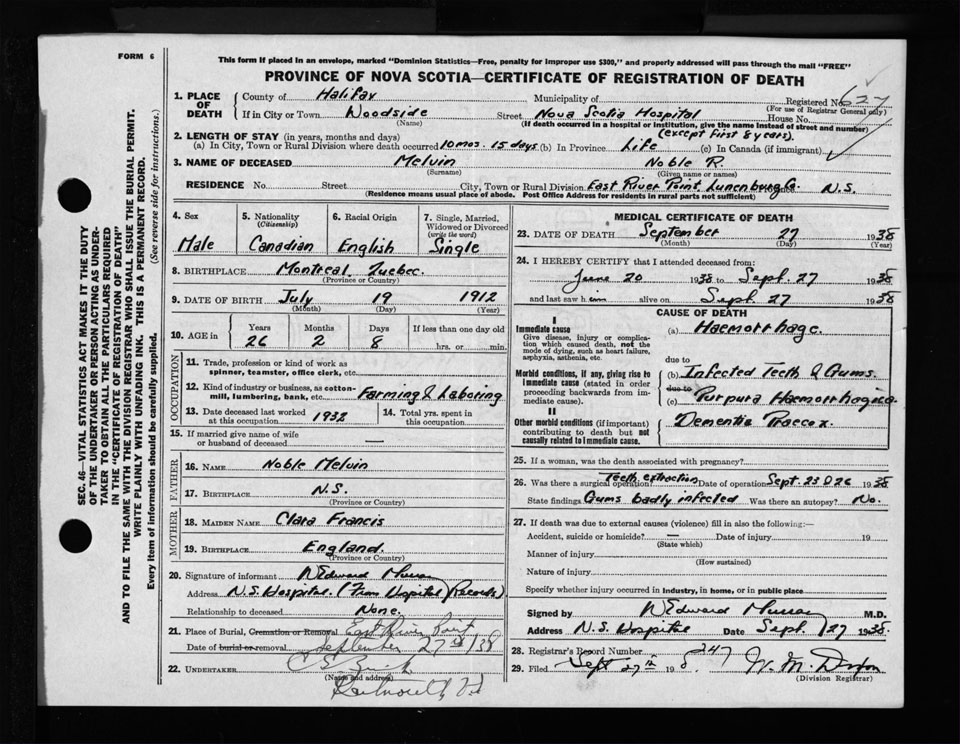 FORM 6
This form if placed in an envelope, marked "Dominion Statistics—Free, penalty for improper use $300," and properly addressed will pass through the mail "FREE"
PROVINCE OF NOVA SCOTIA—CERTIFICATE OF REGISTRATION OF DEATH
SEC. 46—VITAL STATISTICS ACT MAKES IT THE DUTY
OF THE UNDERTAKER OR PERSON ACTING AS UNDER-
TAKER TO OBTAIN ALL THE PARTICULARS REQUIRED
IN THE "CERTIFICATE OF REGISTRATION OF DEATH"
AND TO FILE THE SAME WITH THE DIVISION REGISTRAR WHO SHALL ISSUE THE BURIAL PERMIT.
WRITE PLAINLY WITH UNFADING INK. THIS IS A PERMANENT RECORD.
Every item of information should be carefully supplied. (See reverse side for instructions.)
1. PLACE OF DEATH County of Halifax Municipality of Registered No. 627
(For use of Registrar General only)
If in City or Town Woodside Street Nova Scotia Hospital House No.
(Name) (If death occurred in a hospital or institution, give the name instead of street and number)
2. LENGTH OF STAY (in years, months and days) (except first 8 years).
(a) In City, Town or Rural Division where death occurred 10 mos. 15 days (b) In Province Life (c) In Canada (if immigrant)
3. NAME OF DECEASED Melvin Noble R.
(Surname) (Given name or names)
RESIDENCE No. Street City, Town or Rural Division East River Point Lunenburg Co. N.S.
(Residence means usual place of abode. Post Office Address for residents in rural parts not sufficient)
4. Sex Male
5. Nationality (Citizenship) Canadian
6. Racial Origin English
7. Single, Married, Widowed or Divorced (write the word) Single
8. BIRTHPLACE Montreal, Quebec.
(Province or Country)
9. DATE OF BIRTH July 19 1912
(Month) (Day) (Year)
10. AGE in Years 26 Months 2 Days 8 If less than one day old hrs. or min.
OCCUPATION
11. Trade, profession or kind of work as spinner, teamster, office clerk, etc.
12. Kind of industry or business, as cotton-mill, lumbering, bank, etc. Farming & Laboring
13. Date deceased last worked at this occupation 1932
14. Total yrs. spent in this occupation
15. If married give name of wife or husband of deceased —
FATHER
16. NAME Noble Melvin
17. BIRTHPLACE N.S.
(Province or Country)
MOTHER
18. MAIDEN NAME Clara Francis
19. BIRTHPLACE England.
(Province or Country)
20. Signature of informant N Edward Murray
Address N.S. Hospital. (From Hospital Records)
Relationship to deceased None.
21. Place of Burial, Cremation or Removal East River Point
Date of burial or removal September 27th/38
22. UNDERTAKER
(Name and address)
MEDICAL CERTIFICATE OF DEATH
23. DATE OF DEATH September 27 1938
(Month) (Day) (Year)
24. I HEREBY CERTIFY that I attended deceased from:
June 20 1938 to Sept. 27 1938
and last saw him alive on Sept. 27 1938
CAUSE OF DEATH
I
Immediate cause
Give disease, injury or complication which caused death, not the mode of dying, such as heart failure, asphyxia, asthenia, etc.
(a) Haemorrhage.
due to
Morbid conditions, if any, giving rise to Immediate cause (stated in order proceeding backwards from immediate cause).
(b) Infected Teeth & Gums.
due to
(c) Purpura Haemorrhagica.
II
Other morbid conditions (if important) contributing to death but not causally related to Immediate cause.
Dementia Praecox.
25. If a woman, was the death associated with pregnancy?
26. Was there a surgical operation? Teeth extraction Date of operation Sept. 23 & 26 1938
State findings Gums badly infected Was there an autopsy? No.
27. If death was due to external causes (violence) fill in also the following:—
Accident, suicide or homicide? — Date of injury 19
(State which)
Manner of injury
(How sustained)
Nature of injury
Specify whether injury occurred in industry, in home, or in public place
Signed by N Edward Murray M.D.
Address N.S. Hospital Date Sept. 27 1938.
28. Registrar's Record Number 247
29. Filed Sept 27th 1938
(Division Registrar)